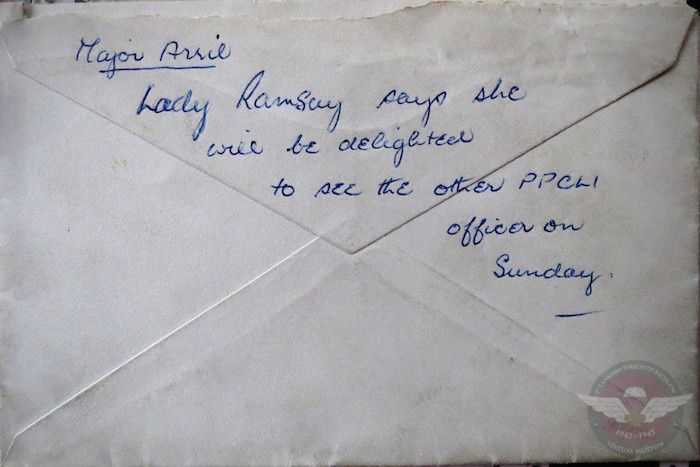 Major Arril
Lady Ramsay says she
will be delighted
to see the other PPCLI
officer on
Sunday.
1ST CANADIAN PARACHUTE BATTALION
1942-1945
VIRTUAL MUSEUM